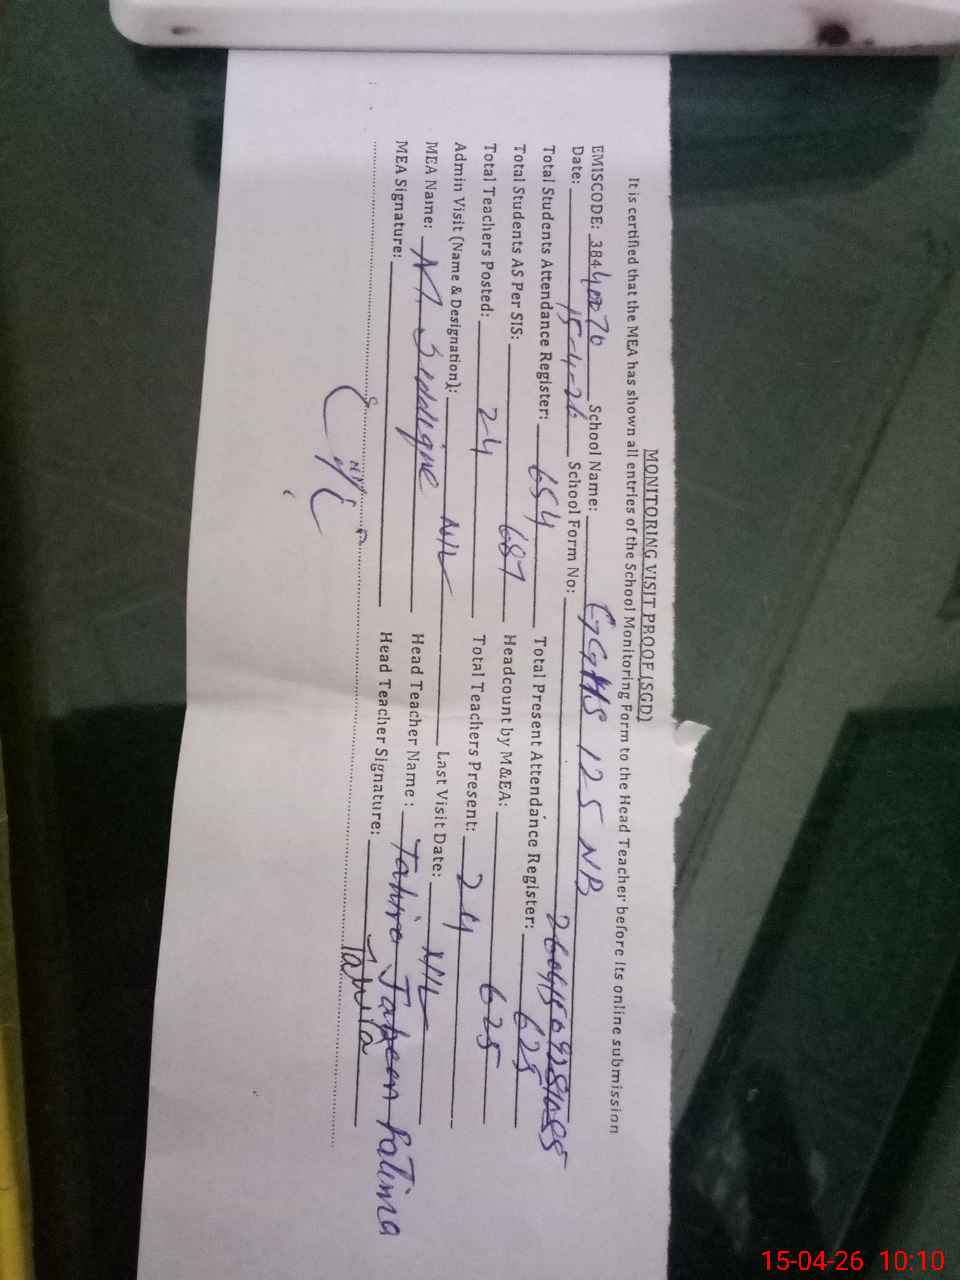 MONITORING VISIT PROOF (SGD)
It is certified that the MEA has shown all entries of the School Monitoring Form to the Head Teacher before its online submission
EMISCODE: 38440070 School Name: GGHS 125 NB
Date: 15-4-26 School Form No:
Total Students Attendance Register: 654 Total Present Attendance Register: 625
Total Students AS Per SIS: 687 Headcount by M&EA: 625
Total Teachers Posted: 24 Total Teachers Present: 24
Admin Visit (Name & Designation): NIL Last Visit Date: NIL
MEA Name: M Siddique Head Teacher Name : Tahira Jabeen Fatima
MEA Signature: Head Teacher Signature: Tahira
15-04-26 10:10